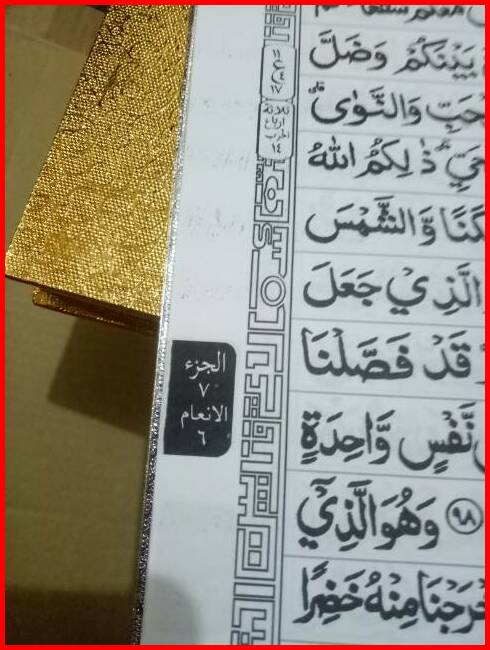 بَيْنَكُمْ وَضَلَّ
حَبِّ وَالنَّوٰى
ذٰلِكُمُ اللّٰهُ
وَّالشَّمْسَ
الَّذِيْ جَعَلَ
قَدْ فَصَّلْنَا
نَّفْسٍ وَّاحِدَةٍ
٩٨ وَهُوَالَّذِيْٓ
مِنْهُ خَضِرًا
١١
ع
١٧
ثلاثة
ارباع
الحزب
١٤
الجزء
٧
الانعام
٦